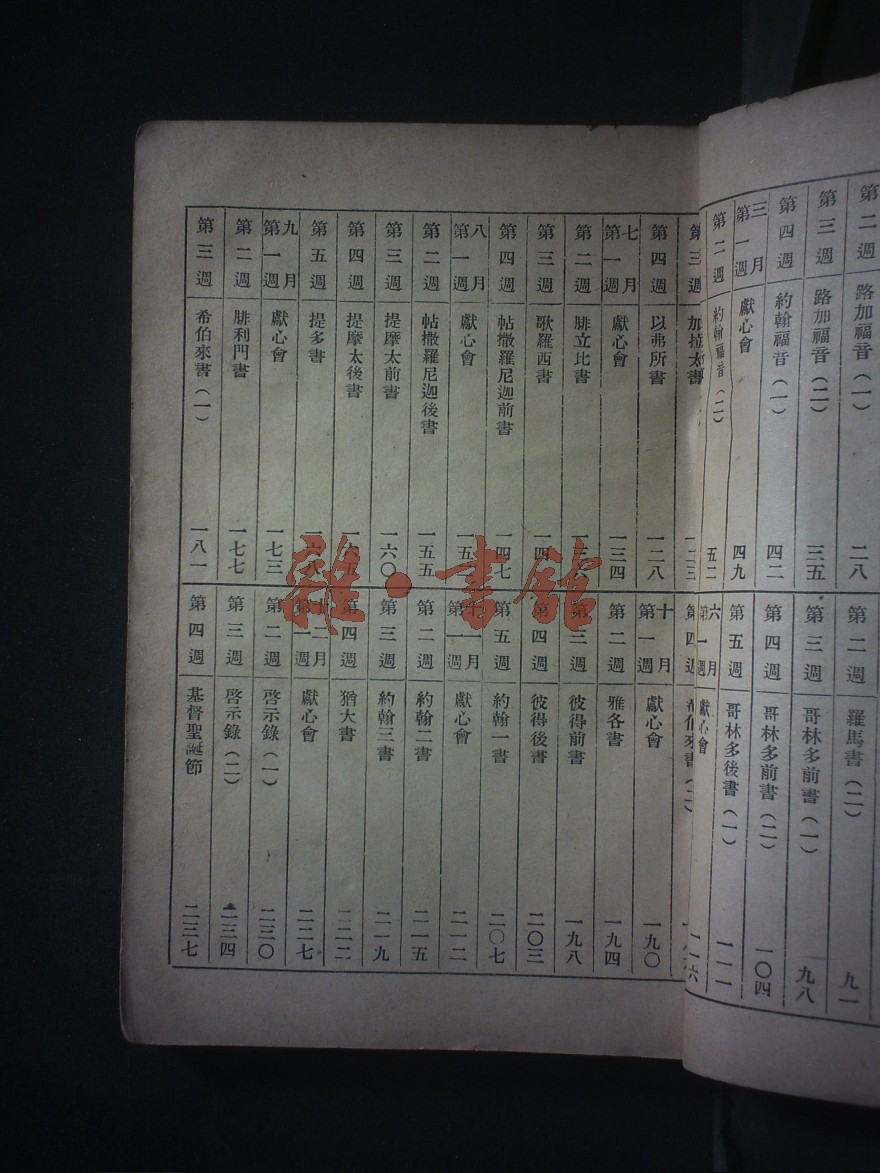 第二週 路加福音（一） 二八
第三週 路加福音（二） 三五
第四週 約翰福音（一） 四二
三月第一週 獻心會 四九
第二週 約翰福音（二） 五二
第二週 羅馬書（二） 九一
第三週 哥林多前書（一） 九八
第四週 哥林多前書（二） 一〇四
第五週 哥林多後書（一） 一一一
六月第一週 獻心會 一一六
第三週 加拉太書 一二三
第四週 以弗所書 一二八
七月第一週 獻心會 一三四
第二週 腓立比書
第三週 歌羅西書
第四週 帖撒羅尼迦前書 一四七
八月第一週 獻心會
第二週 帖撒羅尼迦後書 一五五
第三週 提摩太前書 一六〇
第四週 提摩太後書
第五週 提多書
九月第一週 獻心會 一七三
第二週 腓利門書 一七七
第三週 希伯來書（一） 一八一
第四週 希伯來書（二）
十月第一週 獻心會 一九〇
第二週 雅各書 一九四
第三週 彼得前書 一九八
第四週 彼得後書 二〇三
第五週 約翰一書 二〇七
十一月第一週 獻心會 二一二
第二週 約翰二書 二一五
第三週 約翰三書 二一九
第四週 猶大書 二二二
十二月第一週 獻心會 二二七
第二週 啓示錄（一） 二三〇
第三週 啓示錄（二） 二三四
第四週 基督聖誕節 二三七
雜·書館